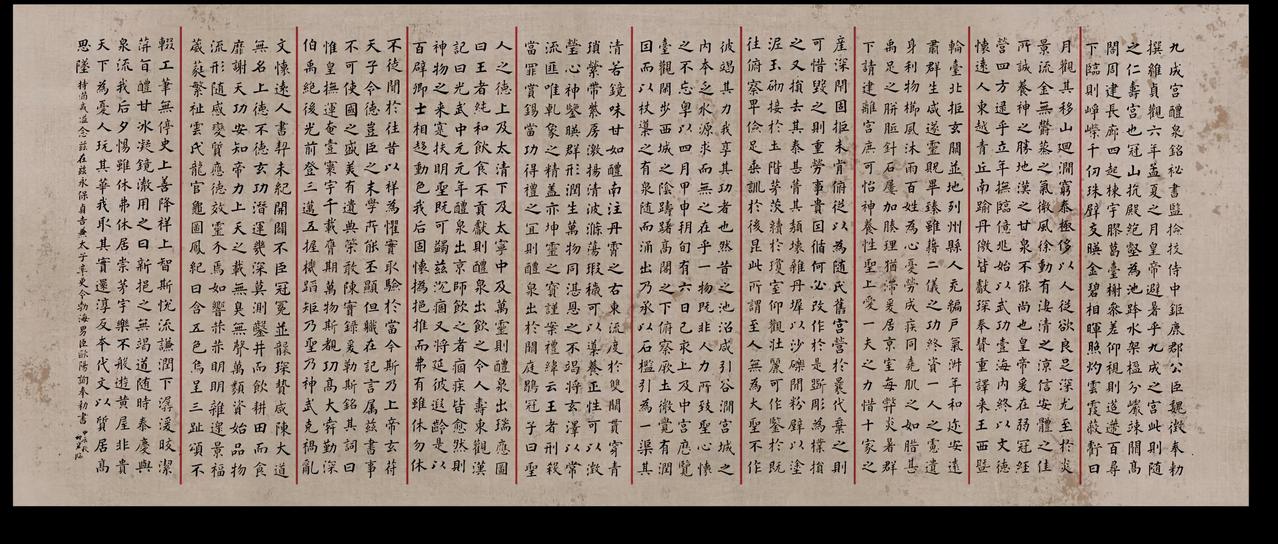 九成宮醴泉銘祕書監檢挍侍中鉅鹿郡公臣魏徵奉勅
撰維貞觀六年孟夏之月皇帝避暑乎九成之宮此則隨
之仁壽宮也冠山抗殿絕壑為池跨水架楹分巖竦闕高
閣周建長廊四起棟宇膠葛臺榭參差仰視則迢遰百尋
下臨則崢嶸千仞珠璧交暎金碧相暉照灼雲霞蔽虧日
月觀其移山迴澗窮泰極侈以人從欲良足深尤至於炎
景流金無鬱蒸之氣微風徐動有淒清之涼信安體之佳
所誠養神之勝地漢之甘泉不能尚也皇帝爰在弱冠經
營四方逮乎立年撫臨億兆始以武功壹海內終以文德
懷遠人東越青丘南踰丹徼皆獻琛奉贄重譯來王西曁
輪臺北拒玄闕並地列州縣人充編戶氣淑年和迩安遠
肅群生咸遂靈貺畢臻雖藉二儀之功終資一人之慮遺
身利物櫛風沐雨百姓為心憂勞成疾同堯肌之如腊甚
禹足之胼胝針石屢加腠理猶滯爰居京室每弊炎暑群
下請建離宮庶可怡神養性聖上愛一夫之力惜十家之
產深閉固拒未肯俯從以為隨氏舊宮營於曩代棄之則
可惜毀之則重勞事貴因循何必改作於是斲彫為樸損
之又損去其泰甚葺其頹壞雜丹墀以沙礫間粉壁以塗
泥玉砌接於土階茅茨續於瓊室仰觀壯麗可作鑒於既
往俯察卑儉足垂訓於後昆此所謂至人無為大聖不作
彼竭其力我享其功者也然昔之池沼咸引谷澗宮城之
內本乏水源求而無之在乎一物既非人力所致聖心懷
之不忘粵以四月甲申朔旬有六日己亥上及中宮歷覽
臺觀閑步西城之陰躊躇高閣之下俯察厥土微覺有潤
因而以杖導之有泉隨而涌出乃承以石檻引為一渠其
清若鏡味甘如醴南注丹霄之右東流度於雙闕貫穿青
瑣縈帶紫房激揚清波滌蕩瑕穢可以導養正性可以澂
瑩心神鑒暎群形潤生萬物同湛恩之不竭將玄澤以常
流匪唯乾象之精蓋亦坤靈之寶謹案禮緯云王者刑殺
當罪賞錫當功得禮之宜則醴泉出於闕庭鶡冠子曰聖
人之德上及太清下及太寧中及萬靈則醴泉出瑞應圖
曰王者純和飲食不貢獻則醴泉出飲之令人壽東觀漢
記曰光武中元元年醴泉出京師飲之者痼疾皆愈然則
神物之來寔扶明聖既可蠲茲沉痼又將延彼遐齡是以
百辟卿士相趨動色我后固懷撝挹推而弗有雖休勿休
不徒聞於往昔以祥為懼實取驗於當今斯乃上帝玄符
天子令德豈臣之末學所能丕顯但職在記言屬茲書事
不可使國之盛美有遺典策敢陳實錄爰勒斯銘其詞曰
惟皇撫運奄壹寰宇千載膺期萬物斯覩功高大舜勤深
伯禹絕後光前登三邁五握機蹈矩乃聖乃神武克禍亂
文懷遠人書契未紀開闢不臣冠冕並襲琛贄咸陳大道
無名上德不德玄功潛運幾深莫測鑿井而飲耕田而食
靡謝天功安知帝力上天之載無臭無聲萬類資始品物
流形隨感變質應德效靈介焉如響赫赫明明雜遝景福
葳蕤繁祉雲氏龍官龜圖鳳紀日含五色烏呈三趾頌不
輟工筆無停史上善降祥上智斯悅流謙潤下潺湲皎潔
蓱旨醴甘冰凝鏡澈用之日新挹之無竭道隨時泰慶與
泉流我后夕惕雖休弗休居崇茅宇樂不般遊黃屋非貴
天下為憂人玩其華我取其實還淳反本代文以質居高
思墜持滿戒溢念茲在茲永保貞吉兼太子率更令勃海男臣歐陽詢奉勅書